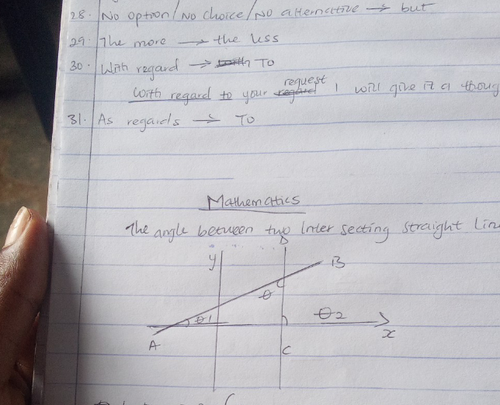 28. No option/No choice/No alternative → but
29. The more → the less
30. With regard → To
With regard to your request I will give it a thoug
31. As regards → To
Mathematics
The angle between two Inter secting straight Lin
y
B
θ
θ1
θ2
x
A
C